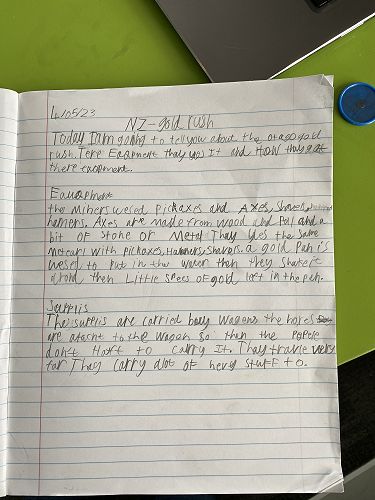 4/05/23
NZ-gold rush
Today I am going to tell you about the otago gold
rush. Tere Eqapment thay uses It and How thay get
there eqapment.
Equapment
the Miners used Pickaxes and Axes, Shovels,
hamers. Axes are made from wood and and a
bit of Stone or Metal Thay Ues the same
metearl with Pickaxes, Hammers, Shavels. a gold Pan is
Uesed to Put in the water then thay shake it
arond then Little Specs of gold left in the pan.
Supplis
The supplis are carried bawy Wagons the hores
are atacht to the Wagon So then the Pepole
don't Haft to carry It. Thay travle very
far Thay Carry alot of hevy Stuff to.